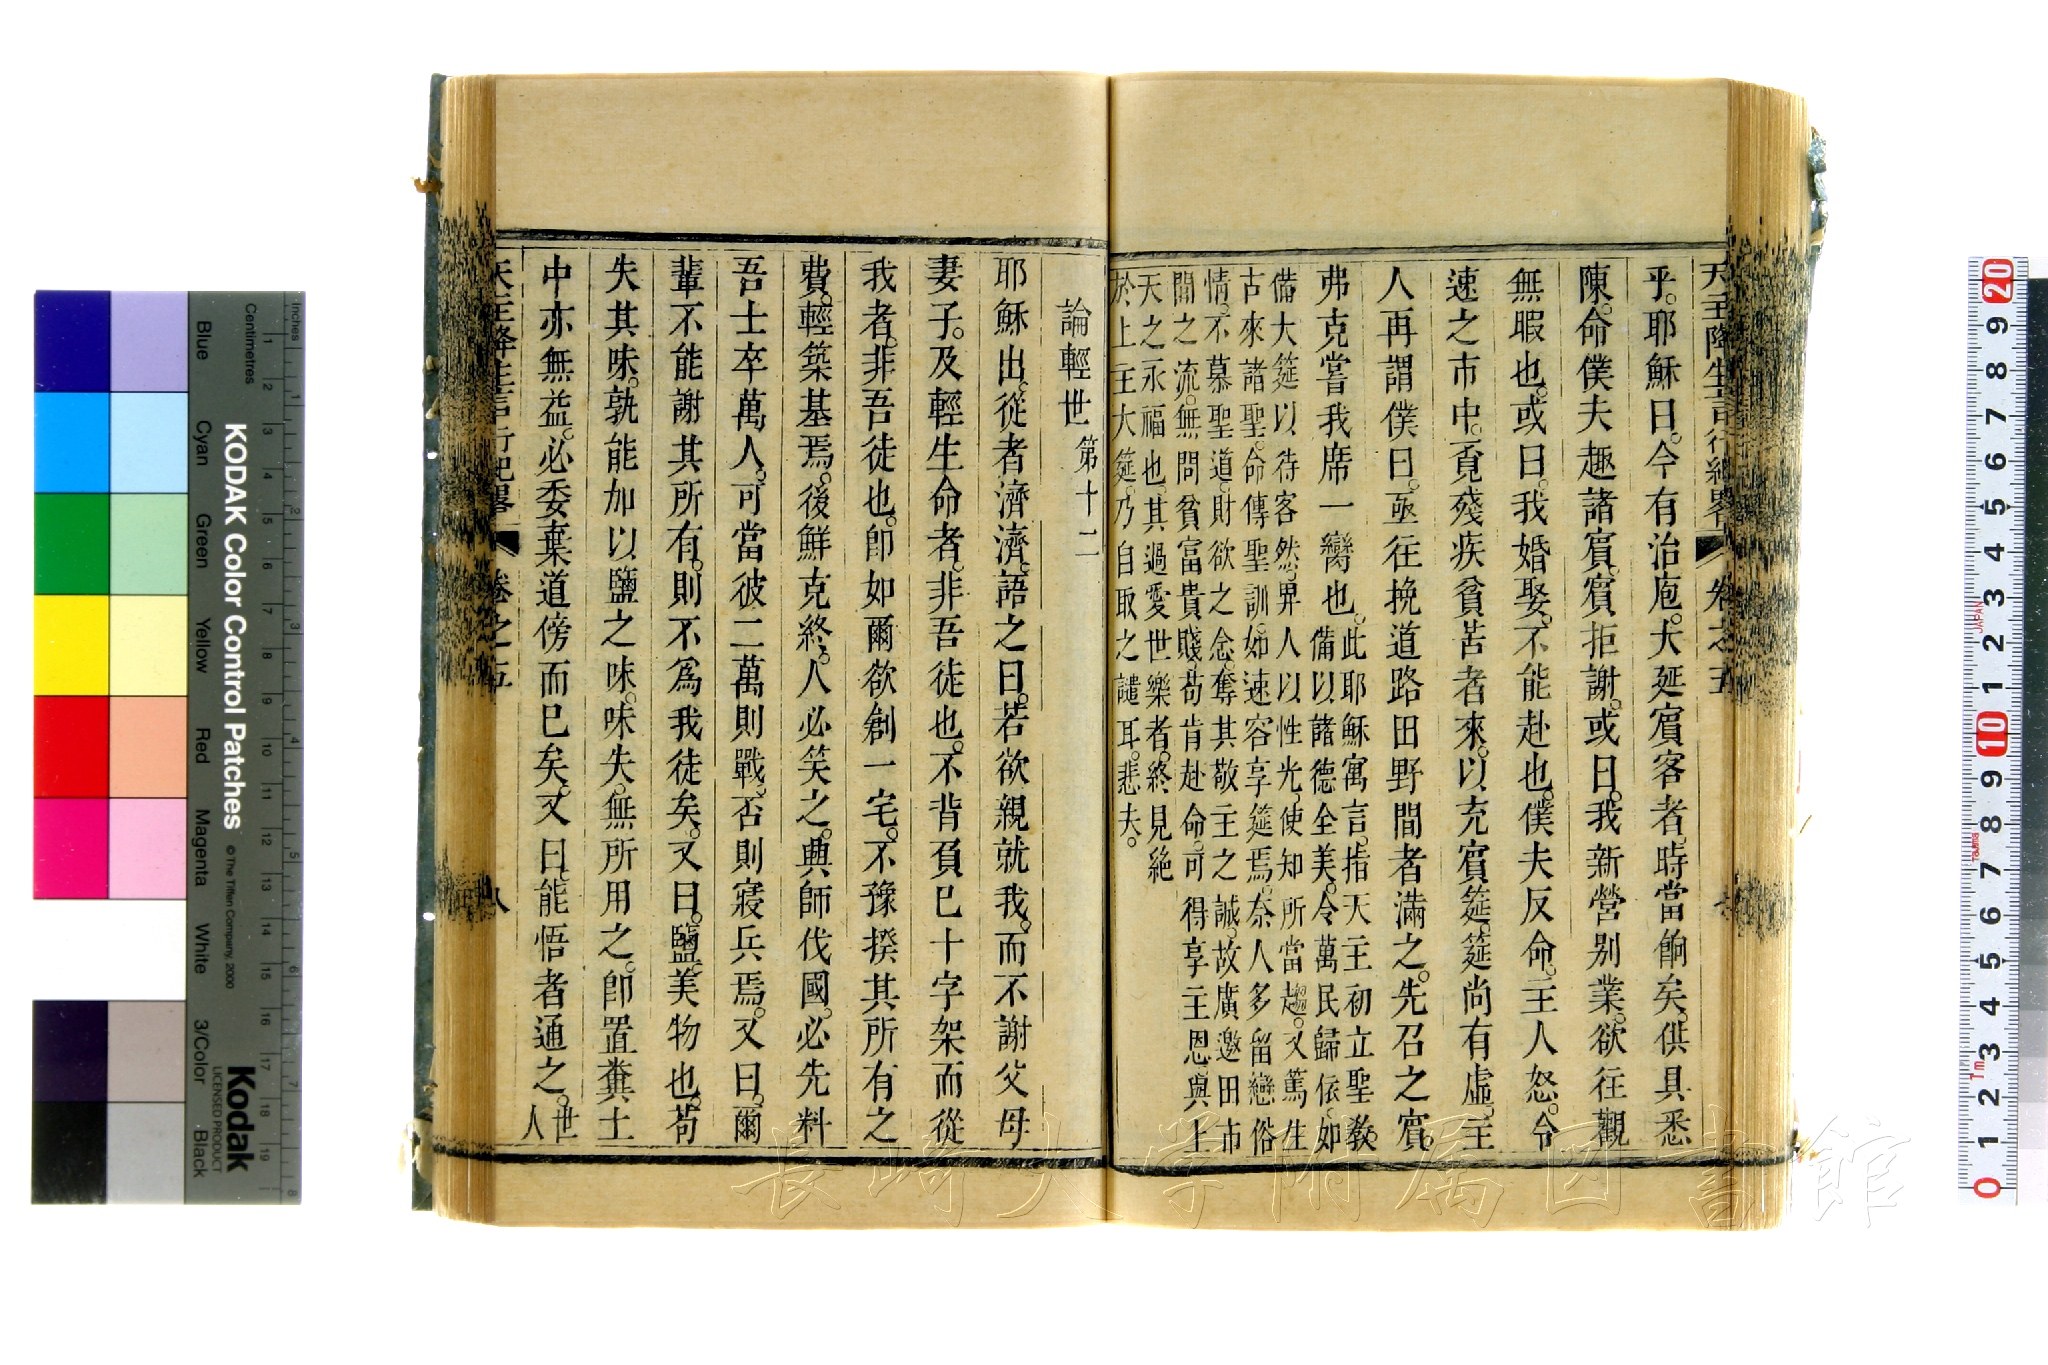 天主降生言行紀畧 卷之五 七
乎。耶穌曰。今有治庖。大延賓客者。時當餉矣。供具悉
陳。命僕夫趣諸賓。賓拒謝。或曰。我新營别業。欲往觀
無暇也。或曰。我婚娶。不能赴也。僕夫反命。主人怒。令
速之市中。覔殘疾貧苦者來。以充賓筵。筵尚有虛。主
人再謂僕曰。亟往挽道路田野間者滿之。先召之賓。
弗克嘗我席一臠也。此耶穌寓言。指天主初立聖敎。
備以諸德全美。令萬民歸依。如
備大筵以待客然。畀人以性光。使知所當趨。又篤生
古來諸聖。命傳聖訓。如速客享筵焉。奈人多留戀俗
情。不慕聖道。財欲之念。奪其敬主之誠。故廣邀田市
間之流。無問貧富貴賤。苟肯赴命。可得享主恩。與上
天之永福也。其過愛世樂者。終見絶
於上主大筵。乃自取之譴耳。悲夫。
論輕世 第十二
耶穌出。從者濟濟。語之曰。若欲親就我。而不謝父母
妻子。及輕生命者。非吾徒也。不背負巳十字架而從
我者。非吾徒也。卽如爾欲創一宅。不豫揆其所有之
費。輕築基焉。後鮮克終。人必笑之。興師伐國。必先料
吾士卒萬人。可當彼二萬則戰。否則寢兵焉。又曰。爾
輩不能謝其所有。則不爲我徒矣。又曰。鹽美物也。苟
失其味。孰能加以鹽之味。味失。無所用之。卽置糞土
中亦無益。必委棄道傍而巳矣。又曰。能悟者通之。世
人
天主降生言行紀畧 卷之五 八
長崎大学附属図書館
KODAK Color Control Patches
© The Tiffen Company, 2000
Kodak
LICENSED PRODUCT
Inches
Centimetres
Blue
Cyan
Green
Yellow
Red
Magenta
White
3/Color
Black
JAPAN
1m